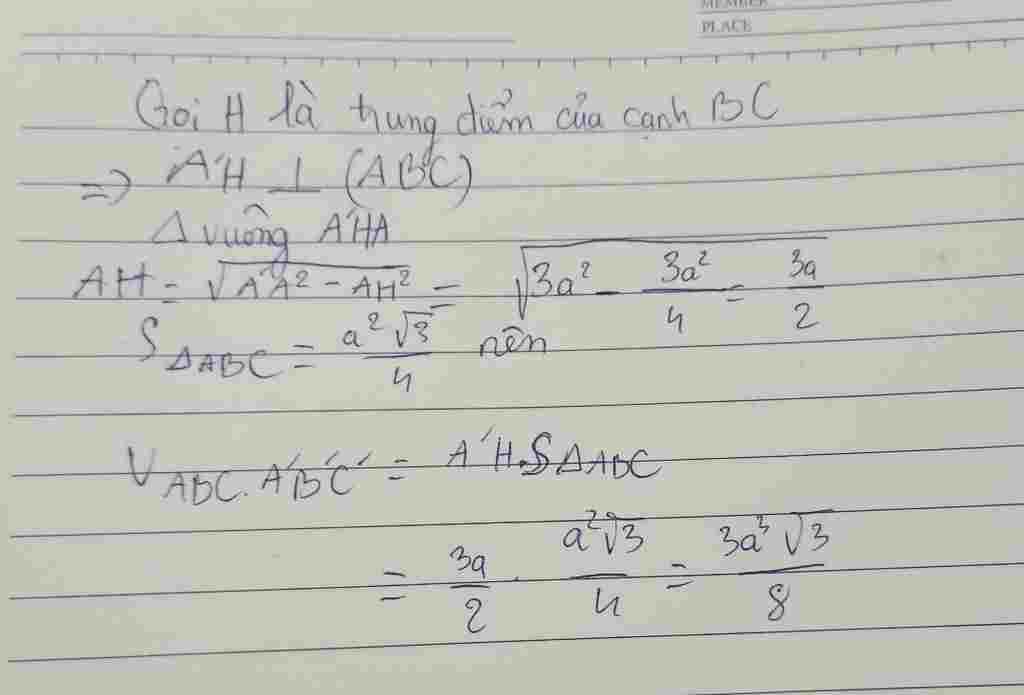 MEMBER
PLACE
Gọi H là trung điểm của cạnh BC
=> A'H ⊥ (ABC)
Δ vuông A'HA
AH = √(A'A² - AH²) = √(3a² - 3a²/4) = 3a/2
S ΔABC = a²√3/4 nên
V ABC.A'B'C' = A'H.S ΔABC
= 3a/2 . a²√3/4 = 3a³√3/8